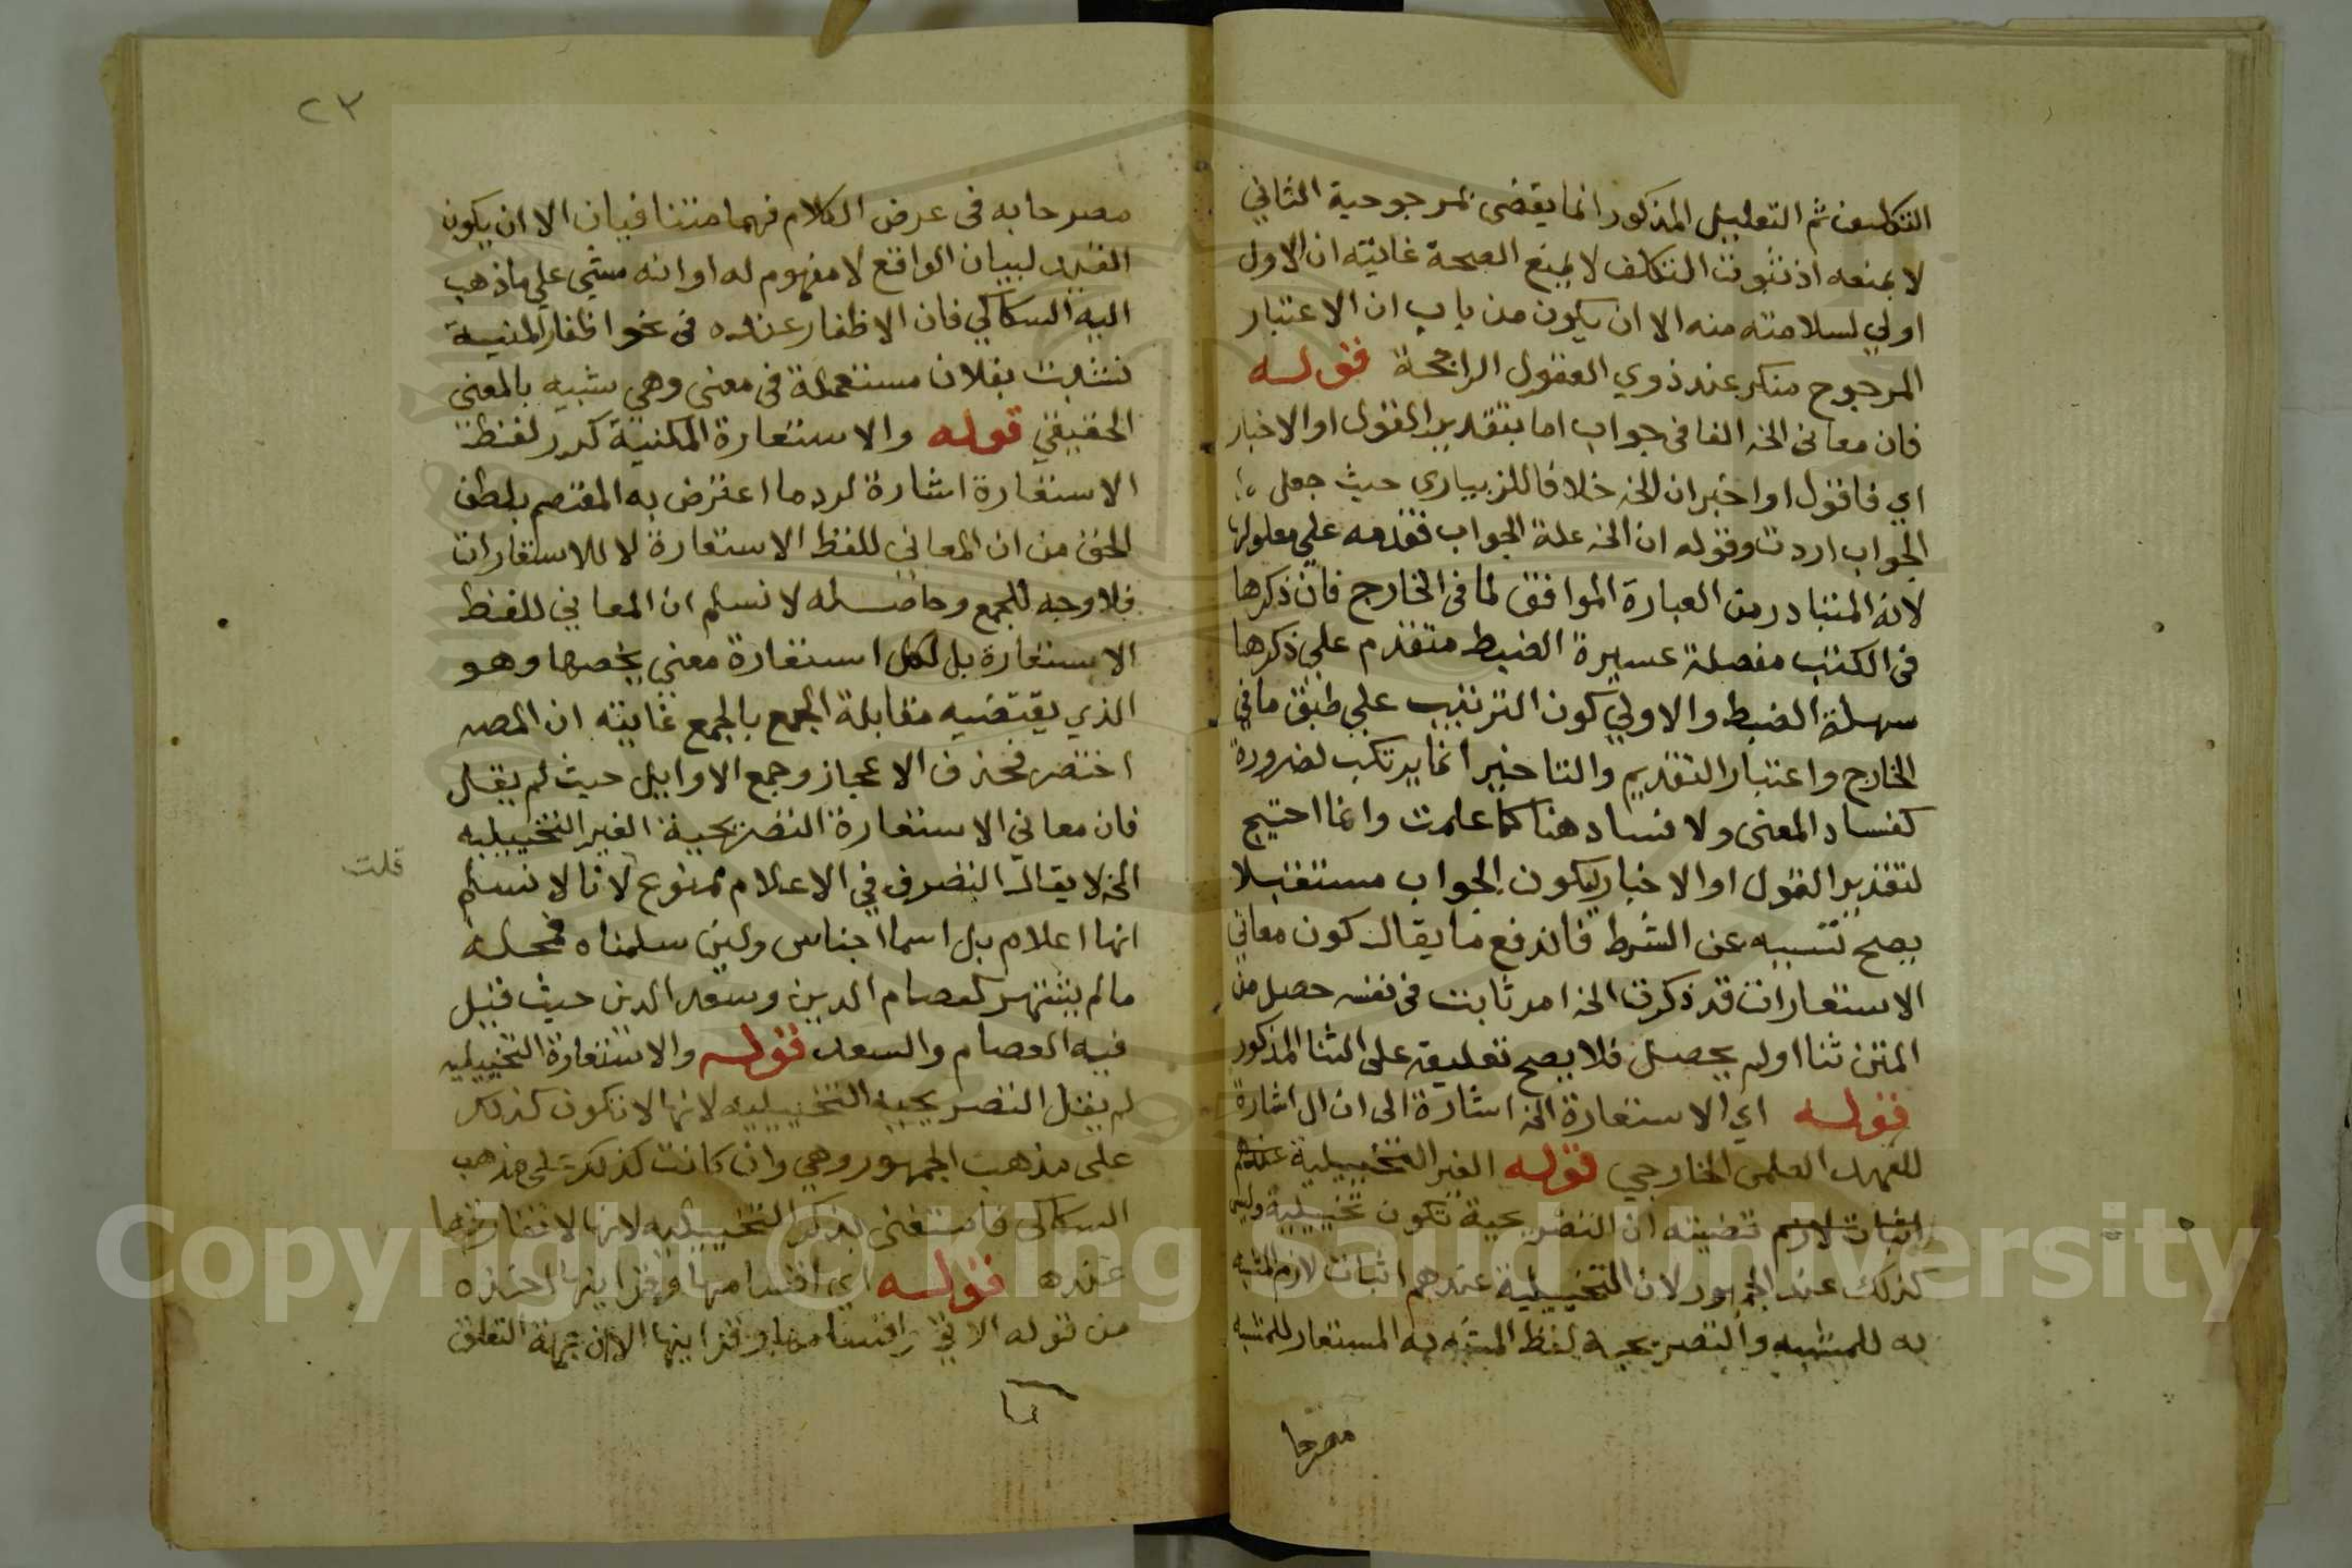 التكليف ثم التعليل المذكور انما يقضى بمرجوحية الثاني
لا بمنعه اذ ثبوت التكلف لا يمنع الصحة غايته ان الاول
اولي لسلامته منه الا ان يكون من باب ان الاعتبار
المرجوح منكر عند ذوي العقول الراجحة قوله
فان معانى الخ الفا فى جواب اما بتقدير القول او الاخبار
اي فاقول او اخبر ان الخ خلافا للزيباري حيث جعل
الجواب اردت وقوله ان الخ علة الجواب فقدمه علي معلولها
لانه المتبادر من العبارة الموافق لما فى الخارج فان ذكرها
فى الكتب مفصلة عسيرة الضبط متقدم علي ذكرها
سهلة الضبط والاولي كون الترتيب علي طبق ما في
الخارج واعتبار التقديم والتاخير انما يرتكب لضرورة
كفساد المعنى ولا فساد هنا كما علمت وانما احتيج
لتقدير القول او الاخبار ليكون الجواب مستقبلا
يصح تسببه عن الشرط فاندفع ما يقال كون معاني
الاستعارات قد ذكرت الخ امر ثابت فى نفسه حصل من
المتن ثنا اولم يحصل فلا يصح تعليقه على الثنا المذكور
قوله اي الاستعارة الخ اشارة الى ان ال اشارة
للعهد العلمى الخارجي قوله الغير التخييلية عندهم
اثبات لازم قضيته ان التصريحية تكون تخييلية وليس
كذلك عند الجمهور لان التخييلية عندهم اثبات لازم المشبه
به للمشبه والتصريحية لفظ المشبه به المستعار للمشبه
مصرحا
٢٣
مصرحا به فى عرض الكلام فهما متنافيان الا ان يكون
القيد لبيان الواقع لا مفهوم له او انه مشي علي ما ذهب
اليه السكاكي فان الاظفار عنده فى نحو اظفار المنية
نشبت بفلان مستعملة فى معنى وهمي شبيه بالمعنى
الحقيقي قوله والاستعارة المكنية كرر لفظ
الاستعارة اشارة لرد ما اعترض به المعتصم بلطف
الحق من ان المعاني للفظ الاستعارة لا للاستعارات
فلا وجه للجمع وحاصله لا نسلم ان المعاني للفظ
الاستعارة بل لكل استعارة معني يخصها وهو
الذي يقتضيه مقابلة الجمع بالجمع غايته ان المصـ
اختصر فحذف الاعجاز وجمع الاوايل حيث لم يقل
فان معاني الاستعارة التصريحية الغير التخييليه
الخ لا يقال التصرف في الاعلام ممنوع لانا لا نسلم
قلت
انها اعلام بل اسما اجناس ولين سلمناه فمحله
ما لم يشتهر كعصام الدين وسعد الدين حيث قيل
فيه العصام والسعد قوله والاستعارة التخييليه
لم يقل التصريحيه التخييليه لانها لا تكون كذلك
على مذهب الجمهور وهي وان كانت كذلك على مذهب
السكاكى فاستغنى بذكر التخييليه لانها لا تفارقها
عنده قوله اي اقسامها وقراينها اخذه
من قوله الاتي واقسامها وقراينها الا ان جهة التعلق
Copyright © King Saud University